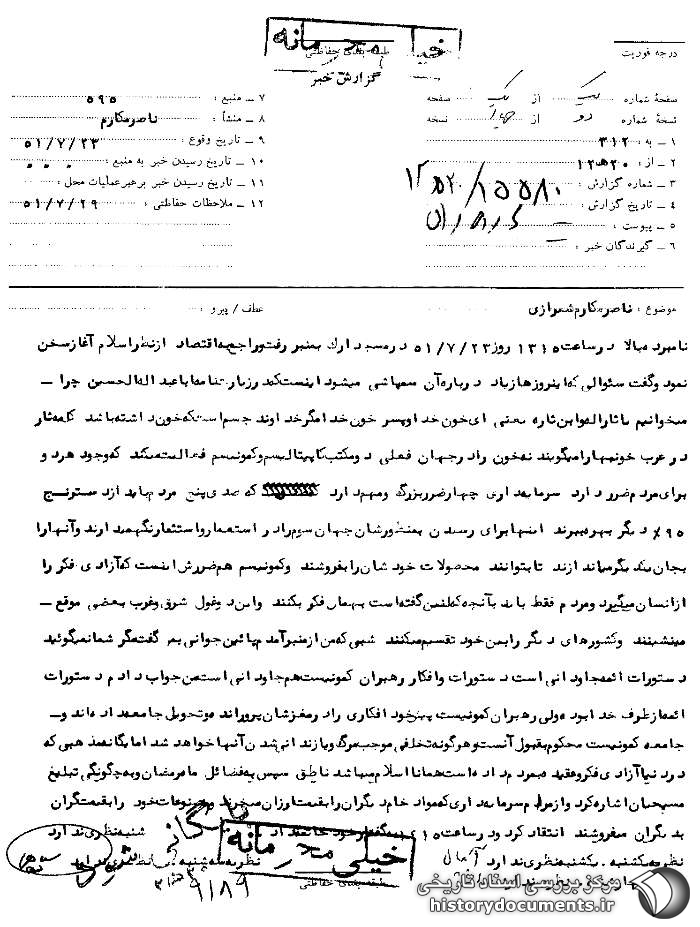 خیلی محرمانه
طبقه بندی حفاظتی
گزارش خبر
درجه فوریت
صفحهٔ شماره یک از یک صفحه
نسخهٔ شماره دو از نسخه
۱ ـ به : ۳۱۲
۲ ـ از : ۲۰ هـ ۱۲
۳ ـ شماره گزارش : ۱۵۵۸۰ / ۲۰ هـ ۱۲
۴ ـ تاریخ گزارش :
۵ ـ پیوست :
۶ ـ گیرندگان خبر :
۷ ـ منبع : ۵۹۵
۸ ـ منشأ : ناصر مکارم
۹ ـ تاریخ وقوع : ۵۱/۷/۲۳
۱۰ ـ تاریخ رسیدن خبر به منبع :
۱۱ ـ تاریخ رسیدن خبر برهبر عملیات محل :
۱۲ ـ ملاحظات حفاظتی : ۵۱/۷/۲۹
موضوع : ناصر مکارم شیرازی
عطف / پیرو :
نامبرده بالا در ساعت ۱۳۱۵ روز ۵۱/۷/۲۳ در مسجد ارک بمنبر رفت و راجع به اقتصاد از نظر اسلام آغاز سخن
نمود و گفت سئوالی که اینروزها زیاد درباره آن میشود اینست که در زیارتنامه اباعبداله الحسین چرا ـ
میخوانیم یا ثاراله و ابن ثاره یعنی ای خون خدا و پسر خون خدا مگر خداوند جسم است که خون داشته باشد کلمه ثار
در عرب خونبها را میگویند نه خون را در جهان فعلی دو مکتب کاپیتالیسم و کمونیسم فعالیت میکند که وجود هر دو
برای مردم ضرر دارد سرمایه داری چهار ضرر بزرگ و مهم دارد که صدی پنج مردم باید از دسترنج
۹۵٪ دیگر بهره ببرند اینها برای رسیدن بمنظورشان جهان سوم را در استعمار و استثمار نگهمیدارند و آنها را
بجان یکدیگر میاندازند تا بتوانند محصولات خودشان را بفروشند و کمونیسم هم ضررش اینست که آزادی فکر را
از انسان میگیرد و مردم فقط باید بآنچه که لنین گفته است بهمان فکر بکنند و این دو غول شرق و غرب بعضی موقع ـ
مینشینند و کشورهای دیگر را بین خود تقسیم میکنند شبی که من از منبر آمدم پائین جوانی بمن گفت مگر شما نمیگوئید
دستورات ائمه جاودانی است دستورات و افکار رهبران کمونیست هم جاودانی است من جواب دادم دستورات
ائمه از طرف خدا بوده ولی رهبران کمونیست پیش خود افکاری را در مغزشان پرورانده و تحویل جامعه داده اند و ـ
جامعه کمونیست محکوم بقبول آنست و هرگونه تخلفی موجب مرگ و یا زندانی شدن آنها خواهد شد اما یگانه مذهبی که
در دنیا آزادی فکر و عقیده بمردم داده است همانا اسلام میباشد ناطق سپس به فضائل ماه رمضان و به چگونگی تبلیغ
مسیحیان اشاره کرد و از مرام سرمایه داری که مواد خام دیگران را بقیمت ارزان میخرند و مصنوعات خود را بقیمت گران
بدیگران میفروشند انتقاد کرد و در ساعت بگفتار خود خاتمه داد
شنبه نظری ندارد
نظریه یکشنبه . یکشنبه نظری ندارد
نظریه سه شنبه . نظری ندارد
خیلی محرمانه
طبقه بندی حفاظتی
بایگانی
۹/۸۹
مرکز بررسی اسناد تاریخی
historydocuments.ir